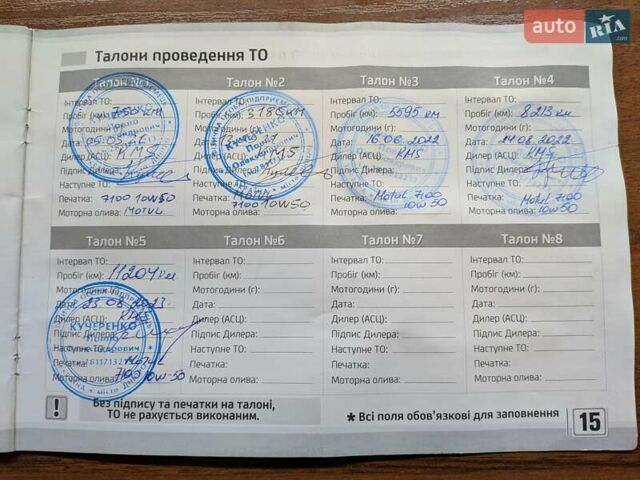 auto RIA .com
Талони проведення ТО
Талон №1
Інтервал ТО:
Пробіг (км):
Мотогодини
Дата:
Дилер (АСЦ): KMS
Підпис Дилера:
Наступне ТО:
Печатка: 7100 10w50
Моторна олива: Motul
Талон №2
Інтервал ТО:
Пробіг (км): 3186 км
Мотогодини
Дата:
Дилер (АСЦ):
Підпис
Наступне ТО:
Печатка: Motul
Моторна олива: 7100 10w50
Талон №3
Інтервал ТО:
Пробіг (км): 5595 км
Мотогодини (г):
Дата: 16.06.2022
Дилер (АСЦ): KMS
Підпис Дилера:
Наступне ТО:
Печатка: Motul 7100
Моторна олива: 10w50
Талон №4
Інтервал ТО:
Пробіг (км): 8213 км
Мотогодини (г):
Дата: 24.08.2022
Дилер (АСЦ): KMS
Підпис Дилера:
Наступне ТО:
Печатка: Motul 7100
Моторна олива: 10w50
Талон №5
Інтервал ТО:
Пробіг (км): 11204 км
Мотогодини
Дата: 23.08.2023
Дилер (АСЦ):
КУЧЕРЕНКО
Підпис
Наступне ТО:
Печатка: Motul
Моторна олива: 7100 10w-50
Талон №6
Інтервал ТО:
Пробіг (км):
Мотогодини (г):
Дата:
Дилер (АСЦ):
Підпис Дилера:
Наступне ТО:
Печатка:
Моторна олива:
Талон №7
Інтервал ТО:
Пробіг (км):
Мотогодини (г):
Дата:
Дилер (АСЦ):
Підпис Дилера:
Наступне ТО:
Печатка:
Моторна олива:
Талон №8
Інтервал ТО:
Пробіг (км):
Мотогодини (г):
Дата:
Дилер (АСЦ):
Підпис Дилера:
Наступне ТО:
Печатка:
Моторна олива:
! Без підпису та печатки на талоні,
ТО не рахується виконаним.
* Всі поля обов'язкові для заповнення
15